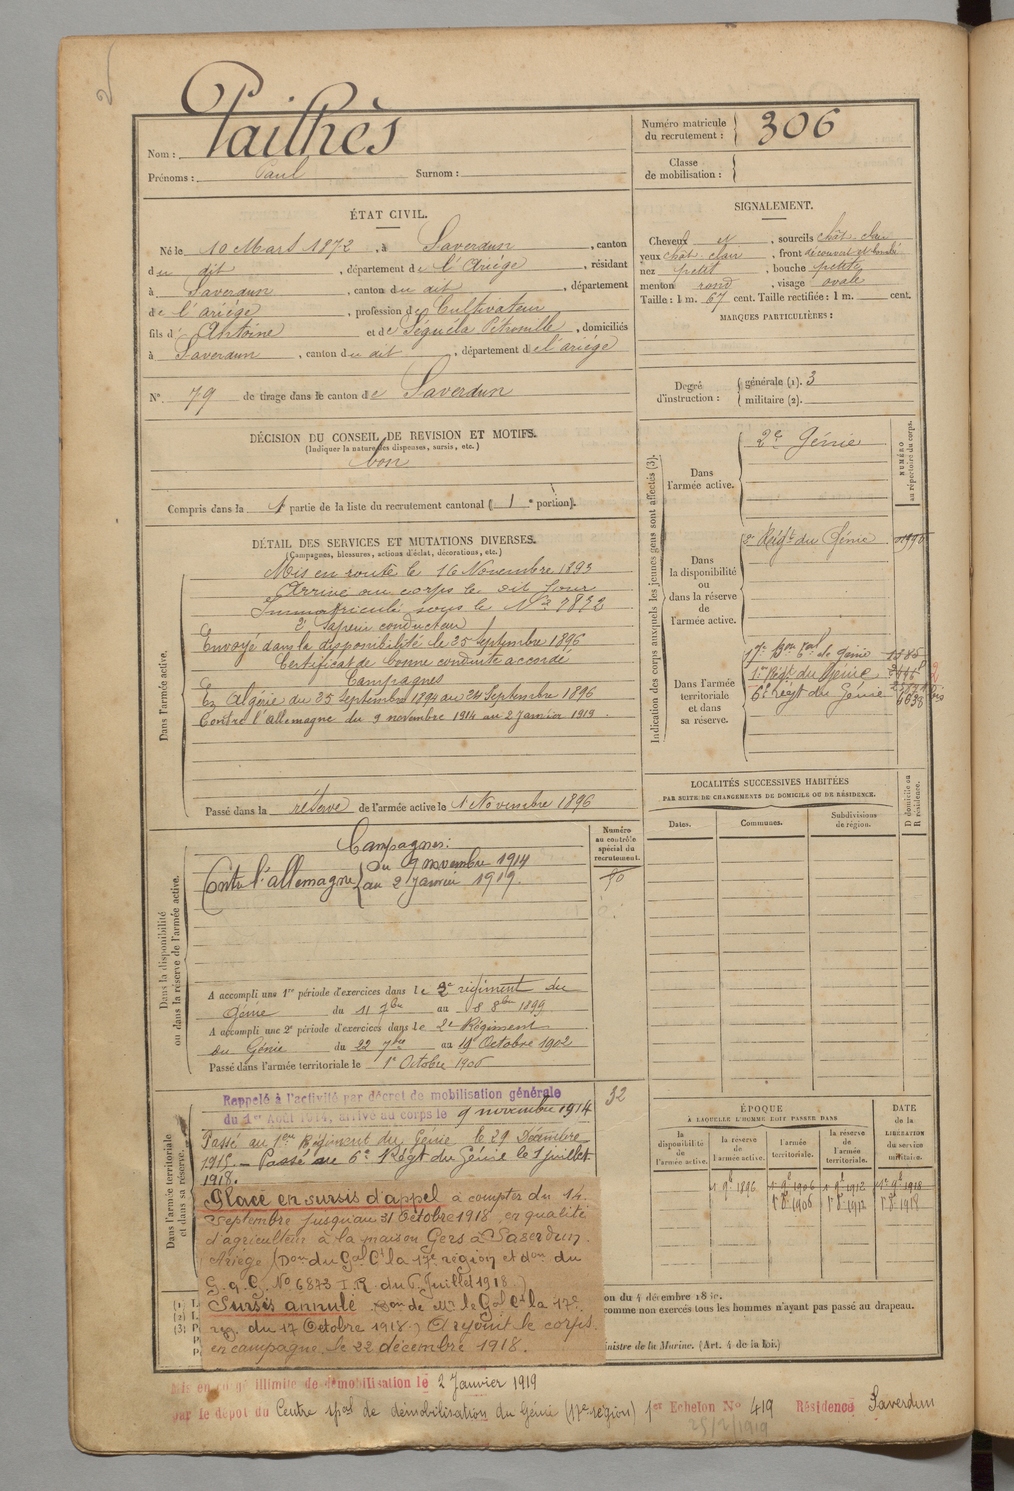 Pailhès
Nom :
Prénoms : Paul Surnom :
Numéro matricule du recrutement : 306
Classe de mobilisation :
ÉTAT CIVIL.
Né le 10 Mars 1872, à Saverdun, canton
du dit, département de l'Ariége, résidant
à Saverdun, canton du dit, département
de l'ariége, profession de Cultivateur
fils d' Antoine et de Séguéla Pétronille, domiciliés
à Saverdun, canton du dit, département de l'ariège
N° 79 de tirage dans le canton de Saverdun
SIGNALEMENT.
Cheveux et, sourcils chât. clair
yeux chât. clair, front découvert et bombé
nez petit, bouche petite
menton rond, visage ovale
Taille : 1 m. 67 cent. Taille rectifiée : 1 m. cent.
MARQUES PARTICULIÈRES :
Degré d'instruction : générale (1). 3
militaire (2).
DÉCISION DU CONSEIL DE REVISION ET MOTIFS.
(Indiquer la nature des dispenses, sursis, etc.)
bon
Compris dans la 1 partie de la liste du recrutement cantonal ( 1 e portion).
DÉTAIL DES SERVICES ET MUTATIONS DIVERSES.
(Campagnes, blessures, actions d'éclat, décorations, etc.)
Dans l'armée active.
Mis en route le 16 Novembre 1893
Arrivé au corps le dit jour
Immatriculé sous le N° 7832
2e Sapeur conducteur
Envoyé dans la disponibilité le 25 Septembre 1896
Certificat de bonne conduite accordé
Campagnes
En Algérie du 25 Septembre 1894 au 24 Septembre 1896
Contre l'Allemagne du 9 novembre 1914 au 2 Janvier 1919.
Passé dans la réserve de l'armée active le 1 Novembre 1896
Indication des corps auxquels les jeunes gens sont affectés (3).
NUMÉRO au répertoire du corps.
Dans l'armée active.
2e Génie
Dans la disponibilité ou dans la réserve de l'armée active.
2e Régt du Génie
Dans l'armée territoriale et dans sa réserve.
17e Bon Tal de Génie
1er Régt du Génie
6e régt du Génie
LOCALITÉS SUCCESSIVES HABITÉES
PAR SUITE DE CHANGEMENTS DE DOMICILE OU DE RÉSIDENCE.
Dates. Communes. Subdivisions de région. D domicile ou R résidence.
Dans la disponibilité ou dans la réserve de l'armée active.
Numéro au contrôle spécial du recrutement.
Campagnes:
Contre l'allemagne { du 9 novembre 1914
au 2 Janvier 1919.
A accompli une 1re période d'exercices dans le 2e régiment du
Génie du 11 7bre au 8 8bre 1899
A accompli une 2e période d'exercices dans le 2e Régiment
du Génie du 22 7bre au 19 Octobre 1902
Passé dans l'armée territoriale le 1er Octobre 1906
Dans l'armée territoriale et dans sa réserve.
32
Rappelé à l'activité par décret de mobilisation générale
du 1er Août 1914, arrivé au corps le 9 novembre 1914
Passé au 1er Régiment du Génie le 29 Décembre
1915. — Passé au 6e Régt du Génie le 1 juillet
1918.
Placé en sursis d'appel à compter du 14
Septembre jusqu'au 31 Octobre 1918, en qualité
d'agriculteur à la maison Gers à Saverdun
Ariége (Don du Gal Ct la 17e région et don du
G.Q.G. N° 6873 I.R. du 6 Juillet 1918.)
Sursis annulé. Don de Mr le Gal Ct la 17e
rég. du 17 Octobre 1918.) A rejoint le corps
en campagne, le 22 décembre 1918.
ÉPOQUE
À LAQUELLE L'HOMME DOIT PASSER DANS
la disponibilité de l'armée active. la réserve de l'armée active. l'armée territoriale. la réserve de l'armée territoriale. DATE de la LIBÉRATION du service militaire.
1 9b 1896 1 9e 1906 1 9e 1912 1er 9e 1918
1er 8e 1906 1er 8e 1912 1er 8e 1918
(1)
(2)
(3)
on du 4 décembre 18
comme non exercés tous les hommes n'ayant pas passé au drapeau.
inistre de la Marine. (Art. 4 de la loi.)
Mis en congé illimité de démobilisation le 2 Janvier 1919
par le dépôt du Centre spal de démobilisation du Génie (17e région) 1er Echelon N° 419 Résidence Saverdun
25/2/1919